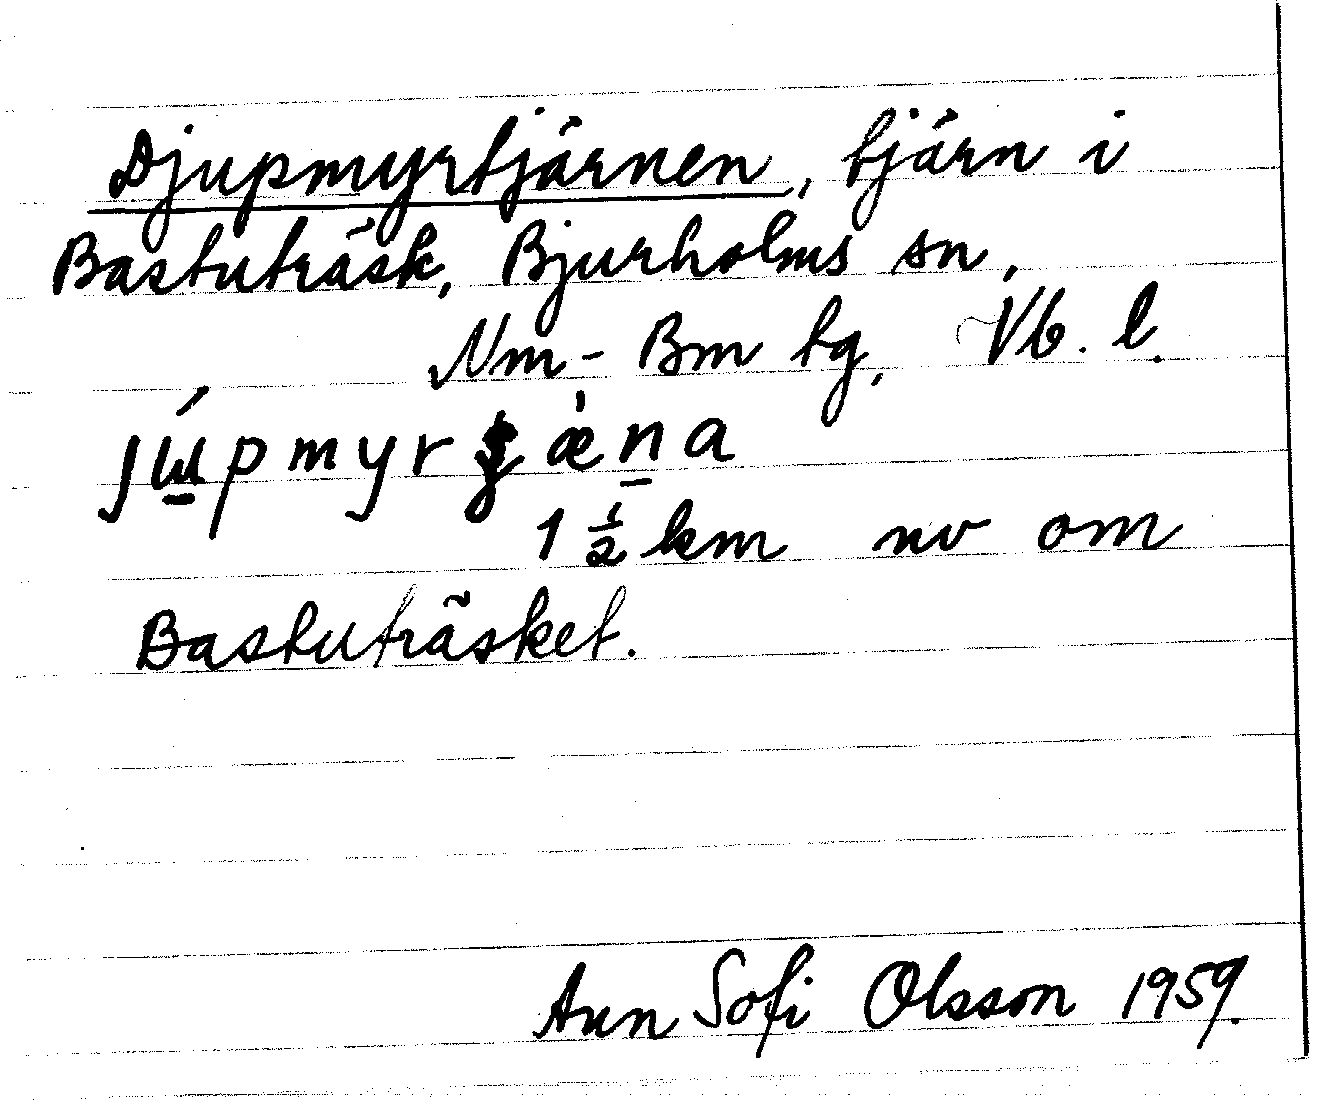 Djupmyrtjärnen, tjärn i
Bastuträsk, Bjurholms sn,
Nm-Bm tg, Vb. l.
1½ km nv om
Bastuträsket.
Ann Sofi Olsson 1959.